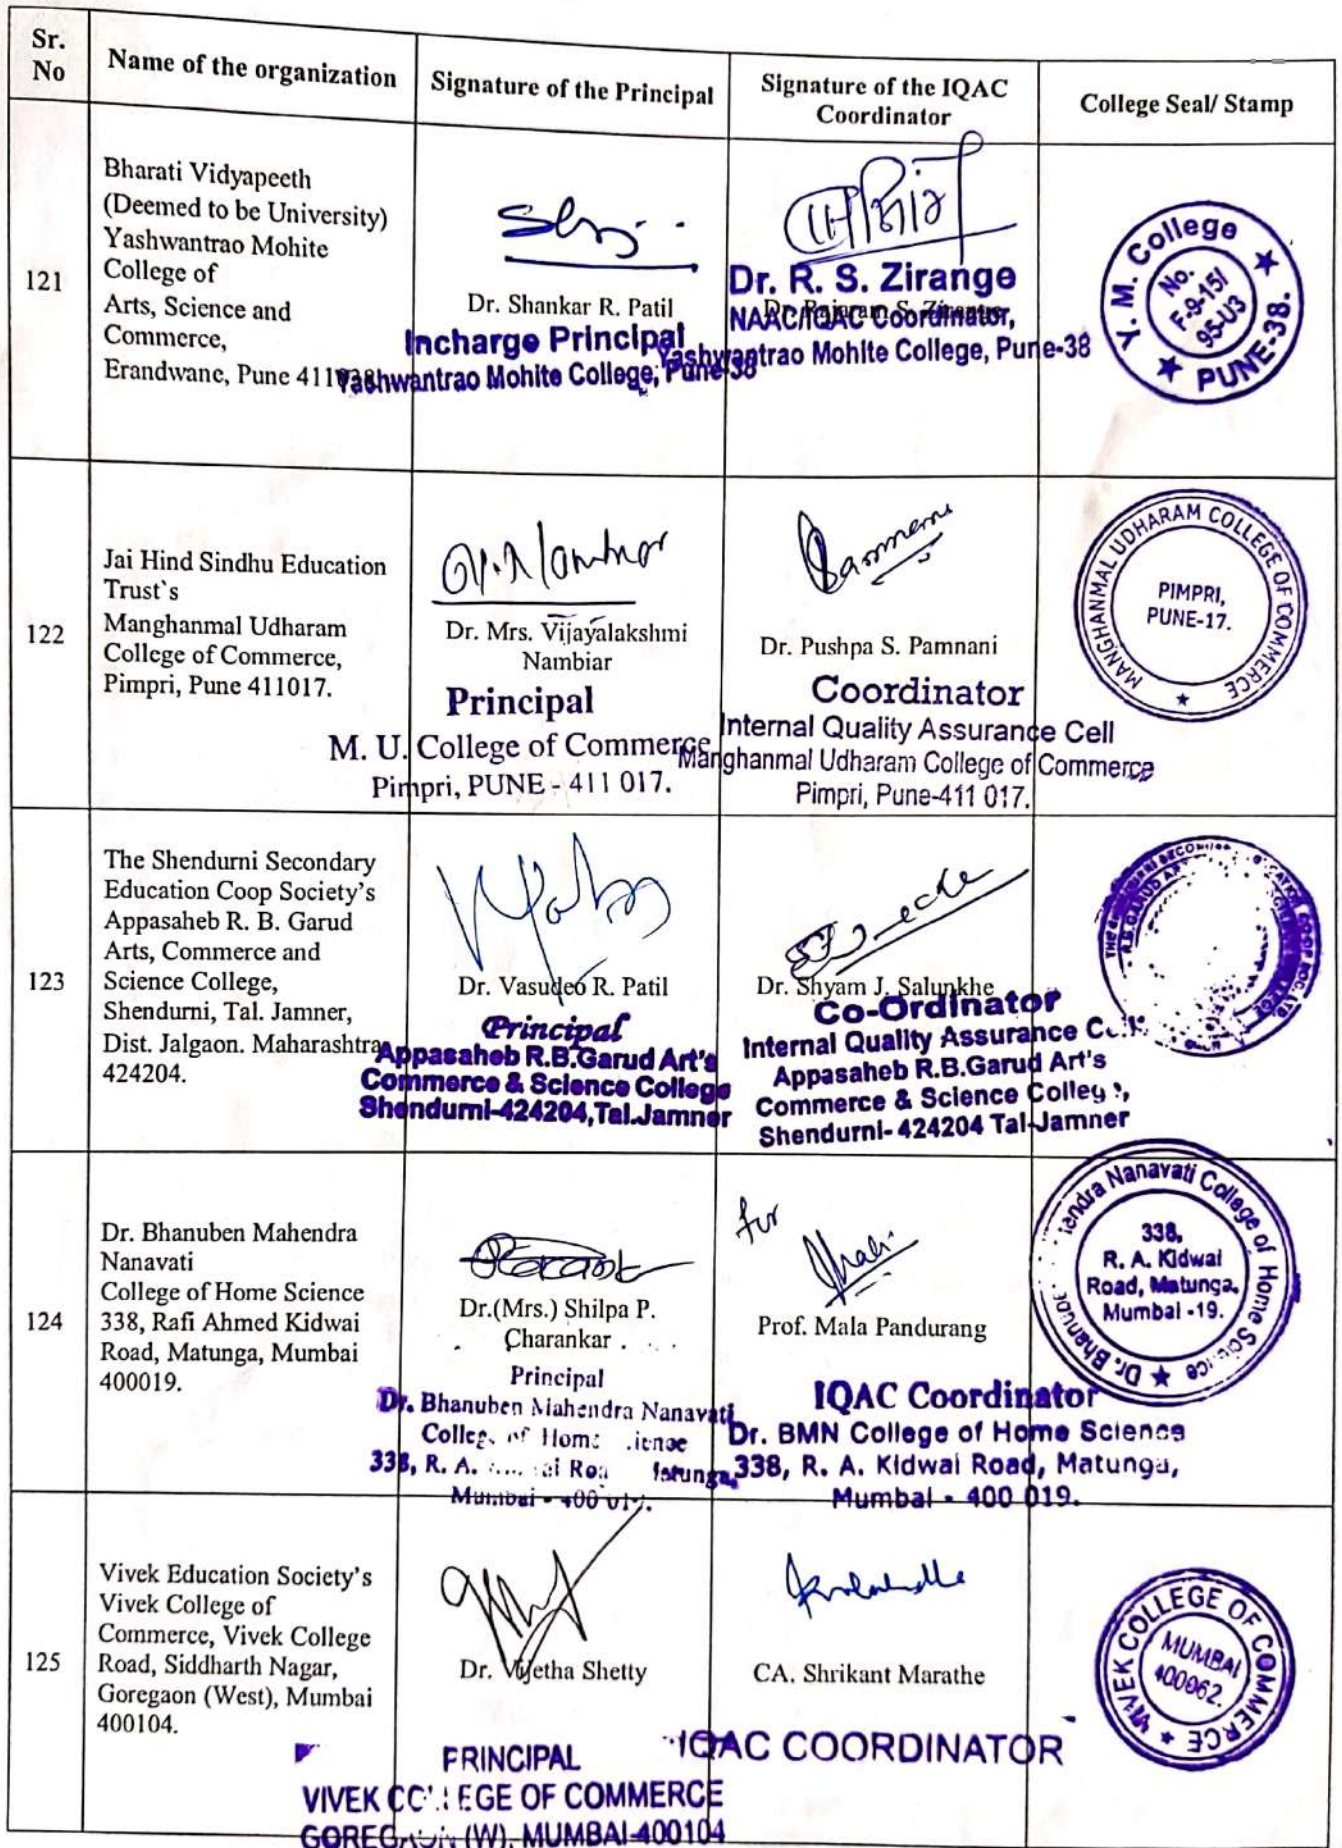 Sr.
No
Name of the organization
Signature of the Principal
Signature of the IQAC
Coordinator
College Seal/ Stamp
121
Bharati Vidyapeeth
(Deemed to be University)
Yashwantrao Mohite
College of
Arts, Science and
Commerce,
Erandwane, Pune 411038
Dr. Shankar R. Patil
Incharge Principal
Yashwantrao Mohite College, Pune-38
Dr. R. S. Zirange
Dr. Rajaram S. Zirange
NAAC/IQAC Coordinator,
Yashwantrao Mohite College, Pune-38
Y. M. College
No.
F-9-15/
95-U3
PUNE-38.
122
Jai Hind Sindhu Education
Trust`s
Manghanmal Udharam
College of Commerce,
Pimpri, Pune 411017.
Dr. Mrs. Vijayalakshmi
Nambiar
Principal
M. U. College of Commerce
Pimpri, PUNE - 411 017.
Dr. Pushpa S. Pamnani
Coordinator
Internal Quality Assurance Cell
Manghanmal Udharam College of Commerce
Pimpri, Pune-411 017.
MANGHANMAL UDHARAM COLLEGE OF COMMERCE
PIMPRI,
PUNE-17.
123
The Shendurni Secondary
Education Coop Society's
Appasaheb R. B. Garud
Arts, Commerce and
Science College,
Shendurni, Tal. Jamner,
Dist. Jalgaon. Maharashtra
424204.
Dr. Vasudeo R. Patil
Principal
Appasaheb R.B.Garud Art's
Commerce & Science College
Shendurni-424204,Tal.Jamner
Dr. Shyam J. Salunkhe
Co-Ordinator
Internal Quality Assurance
Appasaheb R.B.Garud Art's
Commerce & Science
Shendurni- 424204 Tal-Jamner
124
Dr. Bhanuben Mahendra
Nanavati
College of Home Science
338, Rafi Ahmed Kidwai
Road, Matunga, Mumbai
400019.
Dr.(Mrs.) Shilpa P.
Charankar
Principal
Dr. Bhanuben Mahendra Nanavati
of
338, R. A.
for
Prof. Mala Pandurang
IQAC Coordinator
Dr. BMN College of Home Science
338, R. A. Kidwai Road, Matunga,
Mumbai - 400 019.
Dr. Nanavati College of Home
338,
R. A. Kidwai
Road, Matunga,
Mumbai -19.
125
Vivek Education Society's
Vivek College of
Commerce, Vivek College
Road, Siddharth Nagar,
Goregaon (West), Mumbai
400104.
Dr. Vijetha Shetty
PRINCIPAL
VIVEK COLLEGE OF COMMERCE
GOREGAON (W), MUMBAI-400104
CA. Shrikant Marathe
IQAC COORDINATOR
VIVEK COLLEGE OF COMMERCE
MUMBAI
400062.